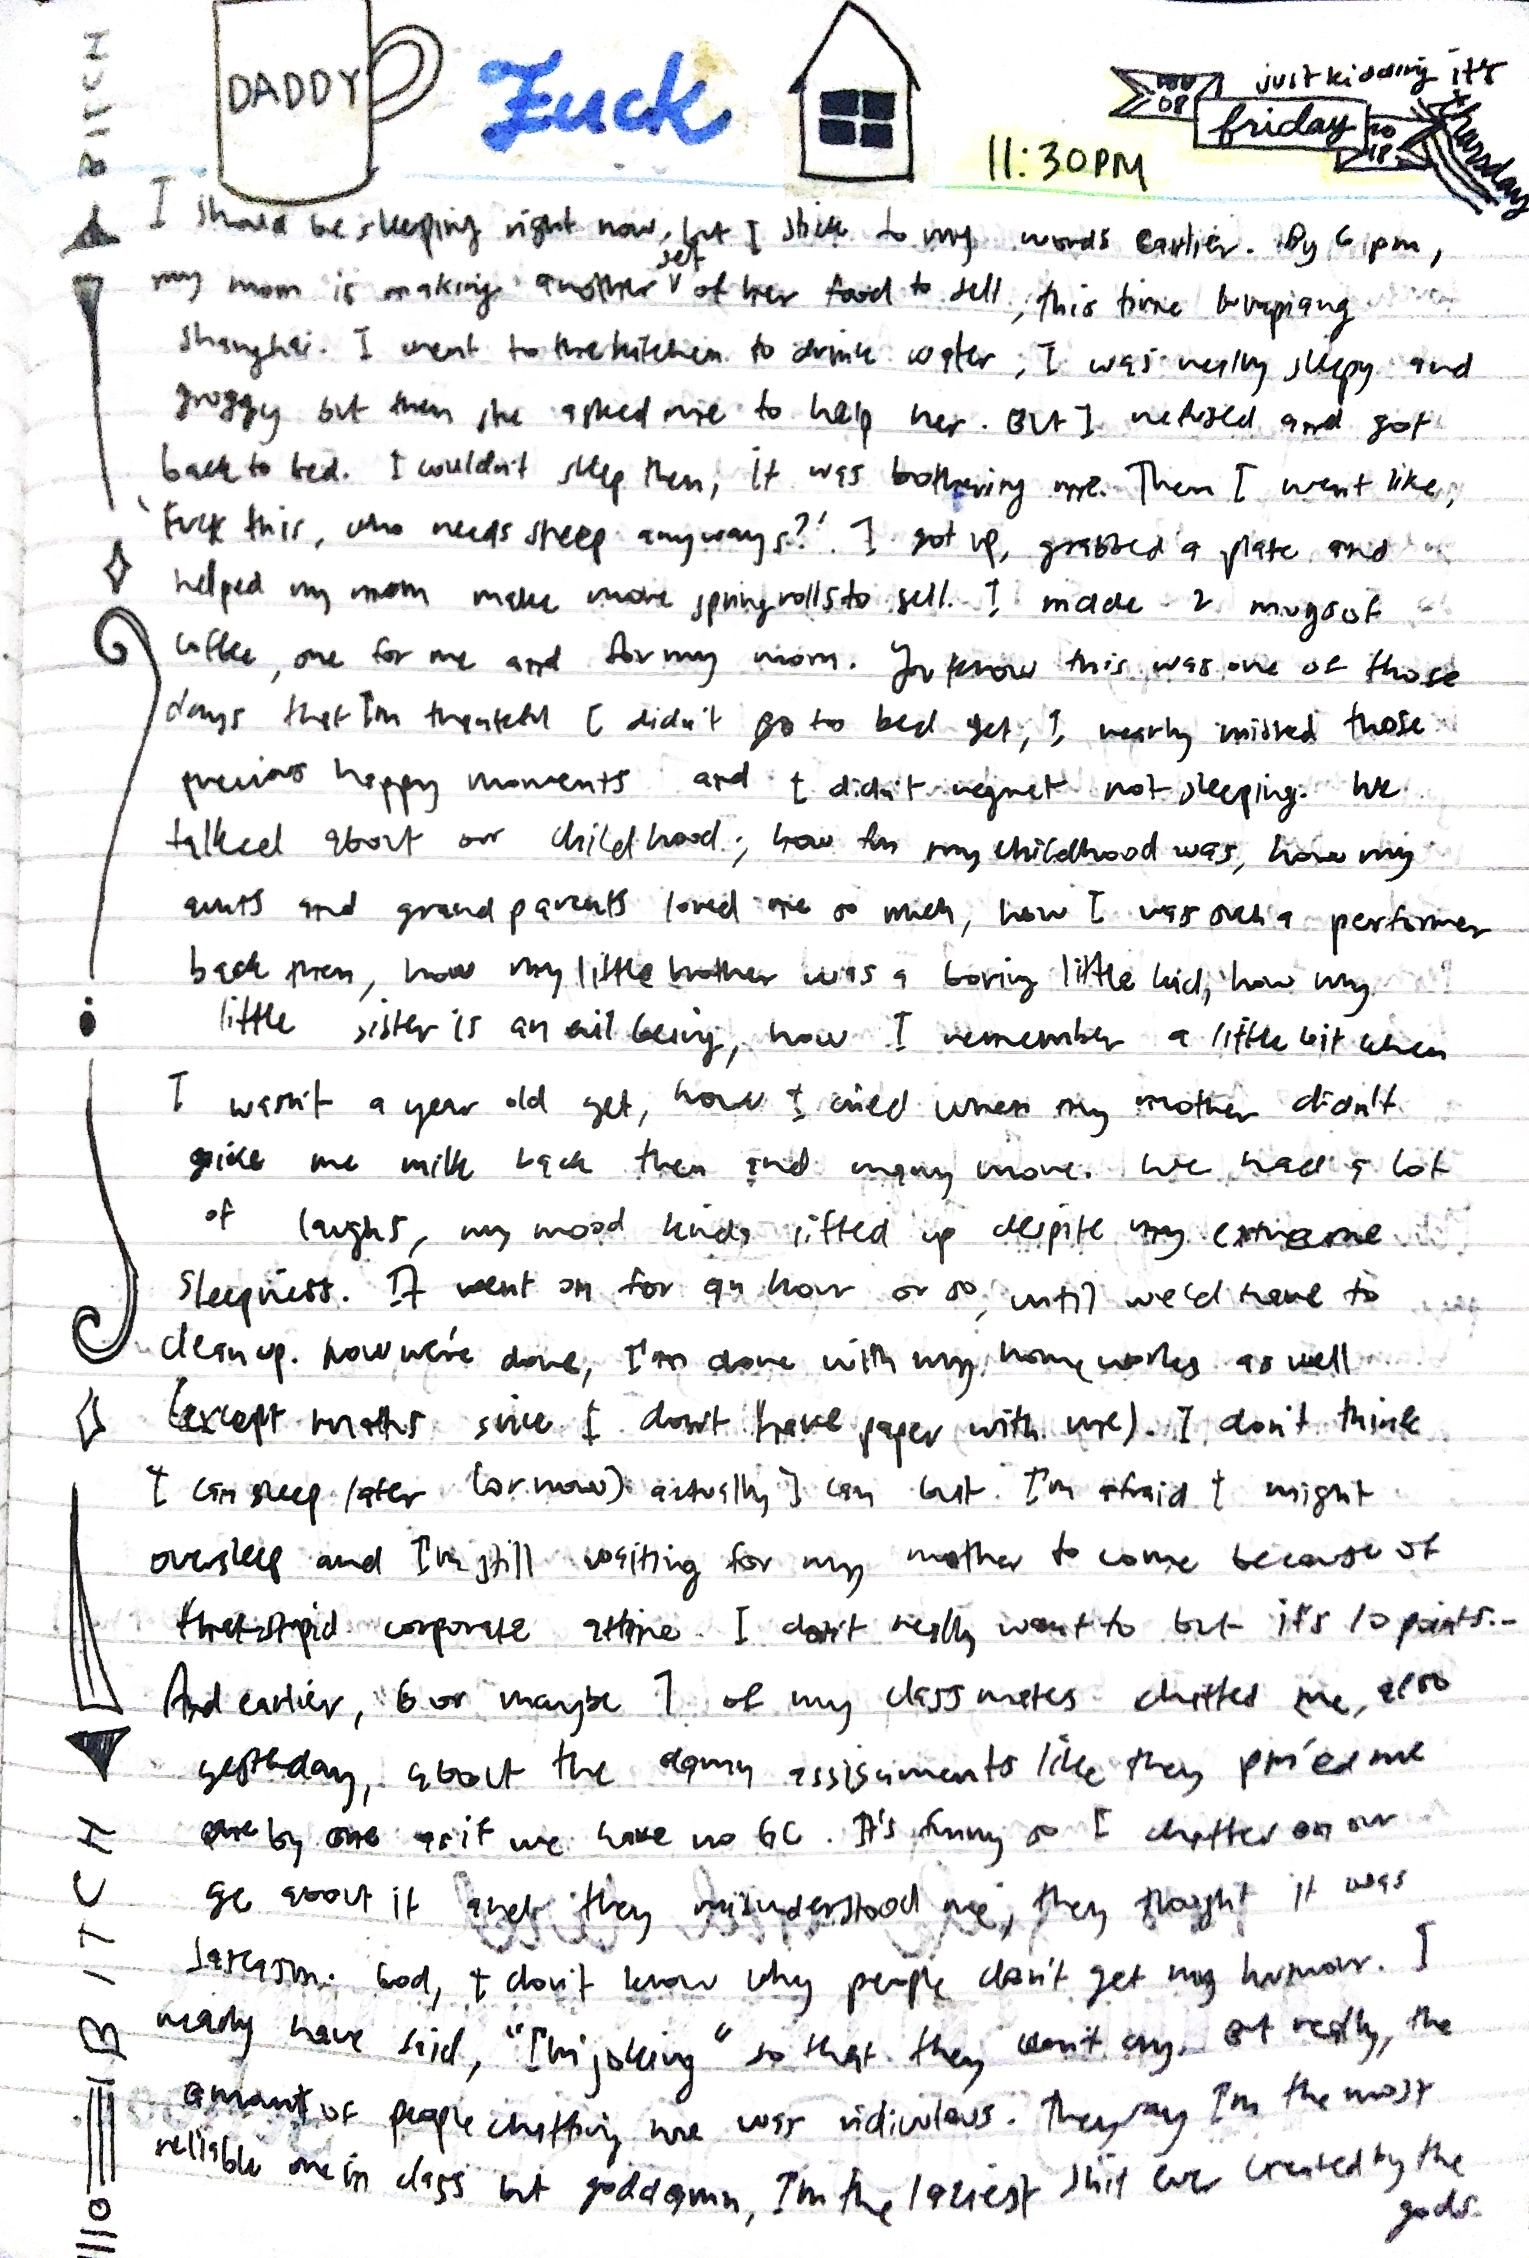 BITCH
DADDY
Fuck
NOV 08
friday
2018
just kidding it's
thursday
11:30PM
I should be sleeping right now, but I stick to my words earlier. By 6 pm,
my mom is making another set of her food to sell, this time lumpiang
shanghai. I went to the kitchen to drink water, I was really sleepy and
groggy but then she asked me to help her. But I refused and got
back to bed. I couldn't sleep then, it was bothering me. Then I went like,
'Fuck this, who needs sleep anyways?' I got up, grabbed a plate and
helped my mom make more spring rolls to sell. I made 2 mugs of
coffee, one for me and for my mom. You know this was one of those
days that I'm thankful I didn't go to bed yet, I nearly missed those
precious happy moments and I didn't regret not sleeping. We
talked about our childhood, how fun my childhood was, how my
aunts and grandparents loved me so much, how I was such a performer
back then, how my little brother was a boring little kid, how my
little sister is an evil being, how I remember a little bit when
I wasn't a year old yet, how I cried when my mother didn't
give me milk back then and many more. We had a lot
of laughs, my mood kinda lifted up despite my extreme
sleepiness. It went on for an hour or so, until we'd have to
clean up. Now we're done, I'm done with my homeworks as well
(except maths since I don't have paper with me). I don't think
I can sleep later (or now) actually I can but I'm afraid I might
oversleep and I'm still waiting for my mother to come because of
that stupid corporate attire. I don't really want to but it's 10 points..
And earlier, 6 or maybe 7 of my classmates chatted me, also
yesterday, about the damn assignments like they pm'ed me
one by one as if we have no GC. It's funny so I chatted on our
gc about it and they misunderstood me, they thought it was
sarcasm. God, I don't know why people don't get my humour. I
nearly have said, "I'm joking" so that they won't cry. But really, the
amount of people chatting me was ridiculous. They say I'm the most
reliable one in class but goddamn, I'm the laziest shit ever created by the
gods.
BITCH